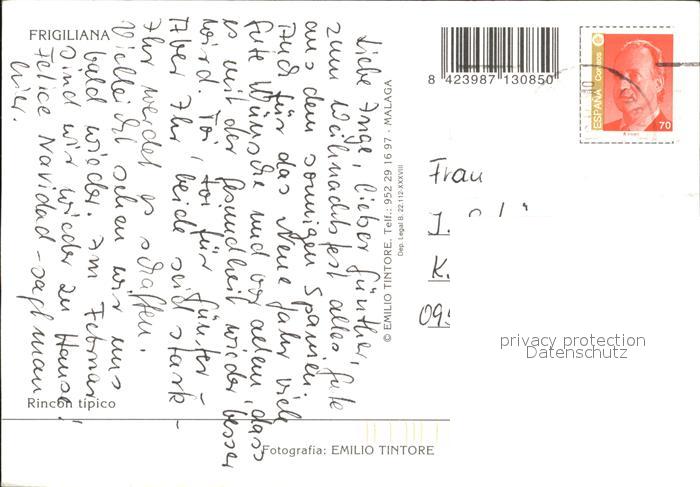 FRIGILIANA
Liebe Inge, lieber Günther,
zum Weihnachtsfest alles Gute
aus dem sonnigen Spanien.
Auch für das Neue Jahr viele
gute Wünsche und vor allem, dass
es mit der Gesundheit wieder besser
wird. Toi, toi für Günter -
Aber Ihr beide seid stark -
Ihr werdet es schaffen.
Vielleicht sehen wir uns
bald wieder. Im Februar
sind wir wieder zu Hause!
Felice Navidad - sagt man
hier.
Rincón típico
© EMILIO TINTORE. Telf.: 952 29 16 97 - MALAGA
Dep. Legal B. 22.112-XXXVIII
Fotografia: EMILIO TINTORE
8 423987 130850
ESPAÑA Correos
70
Frau
J.
K.
09
privacy protection
Datenschutz